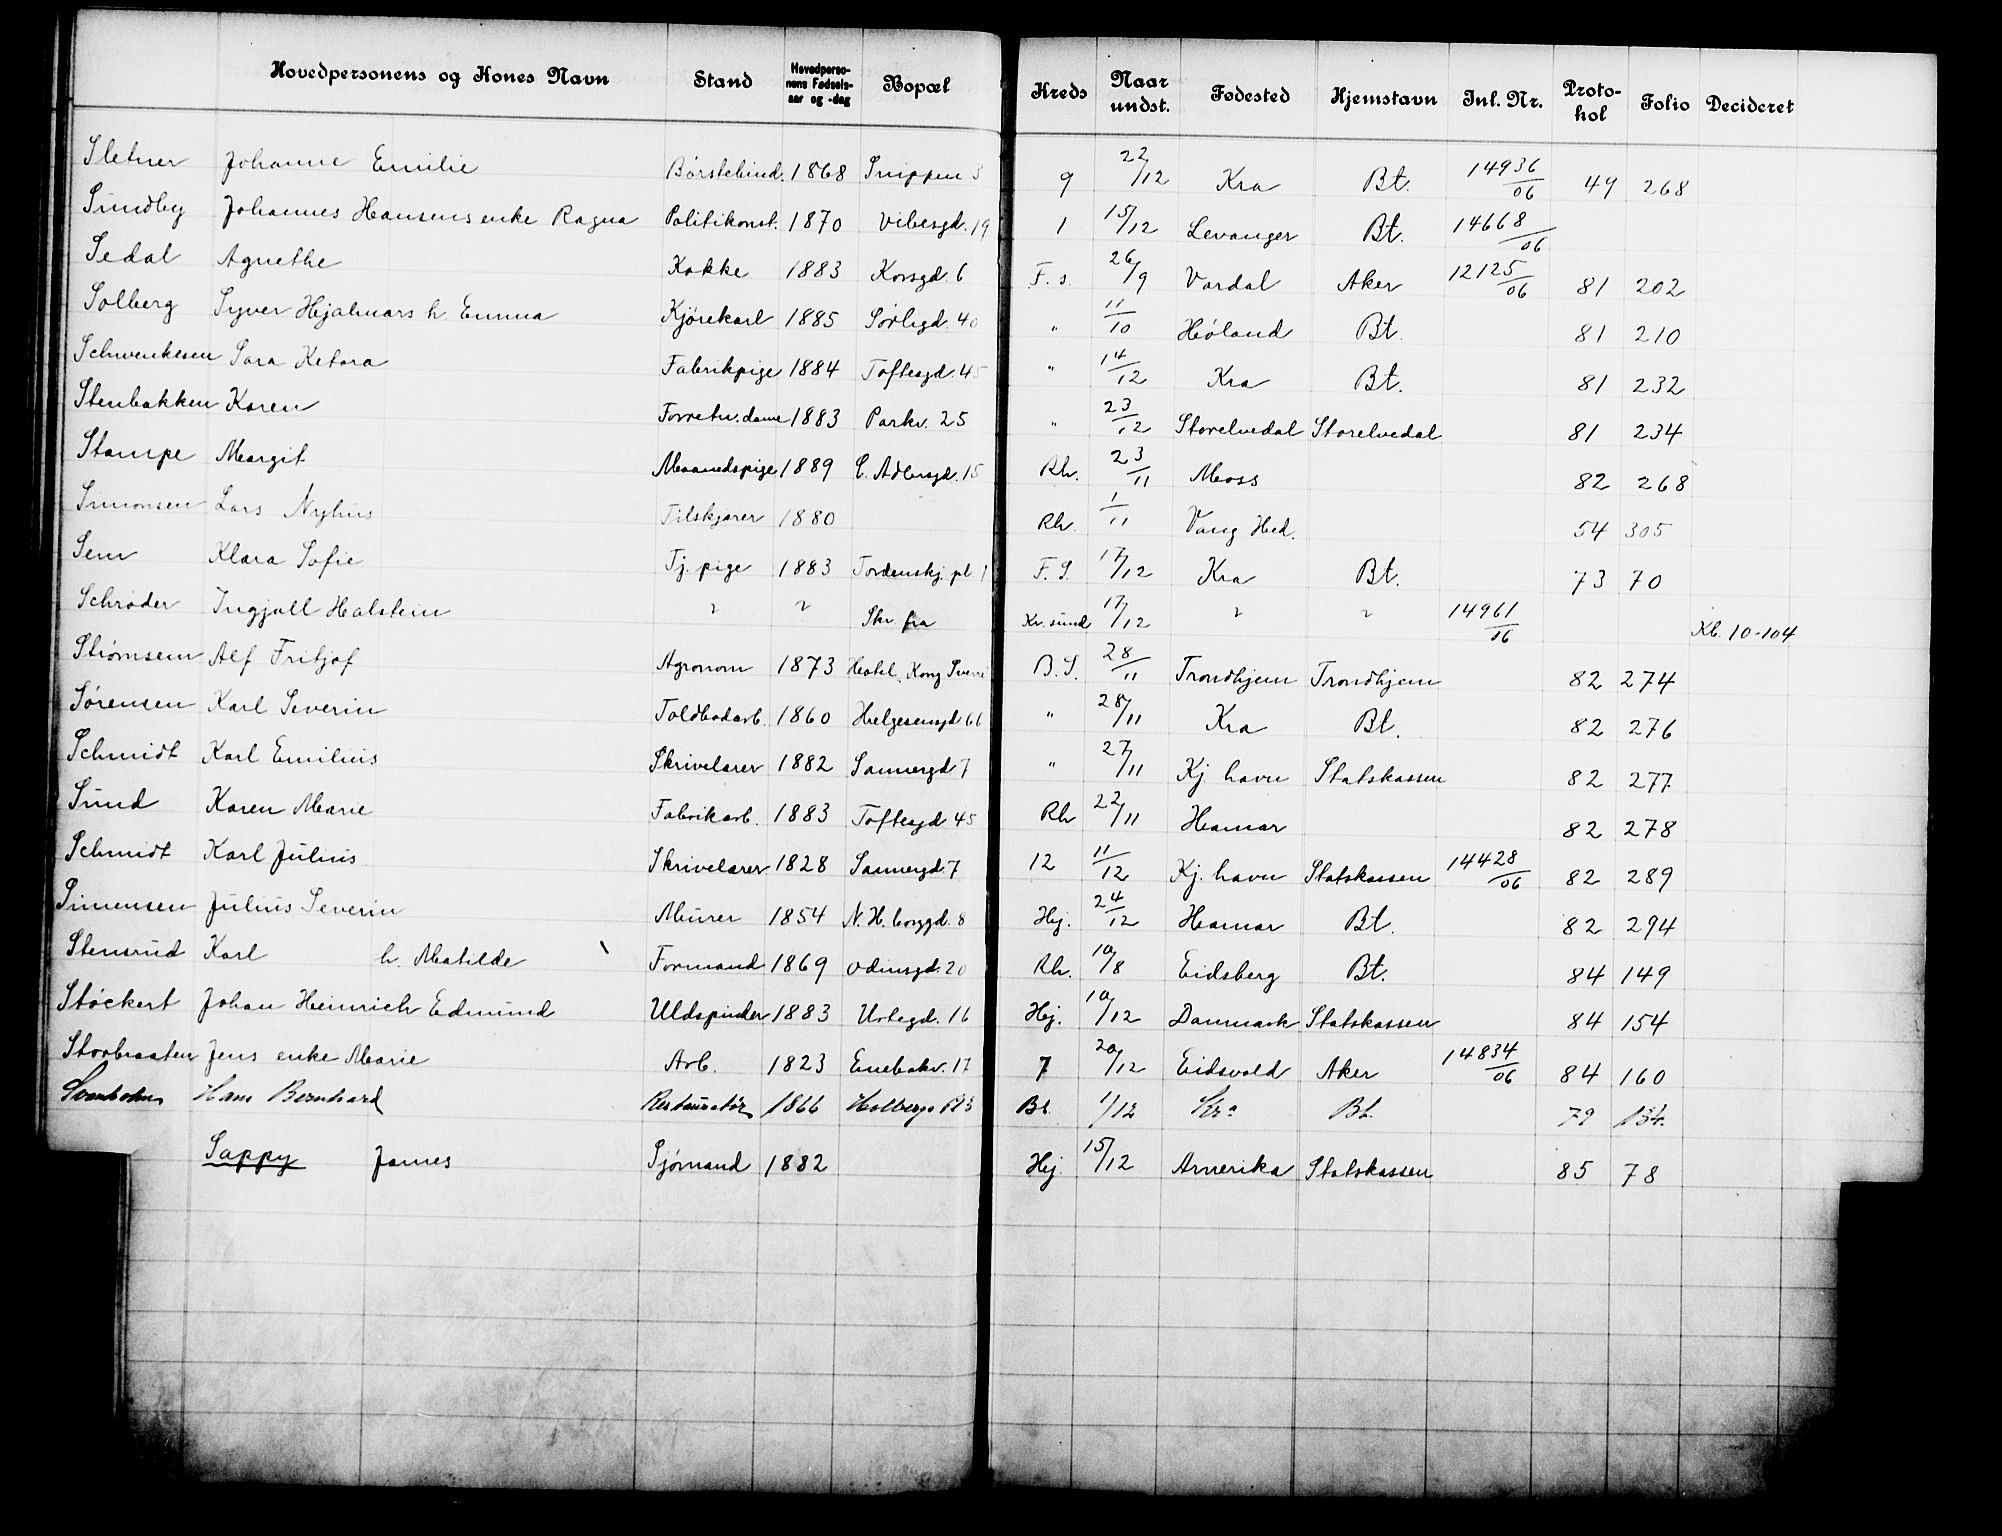 Hovedpersonens og Kones Navn Stand Hovedpersonens Fødselsaar og -dag Bopæl Kreds Naar undst. Fødested Hjemstavn Inl. Nr. Protokol Folio Decideret
Sletner Johanne Emilie Børstebind. 1868 Snippen 3 9 22/12 Kra Bt. 14936/06 49 268
Sundby Johannes Hansens enke Ragna Politikonst. 1870 Vibesgd. 19 1 15/12 Levanger Bt. 14668/06
Sedal Agnethe Kokke 1883 Korsgd. 6 F. S. 26/9 Vardal Aker 12125/06 81 202
Solberg Syver Hjalmars h. Emma Kjørekarl 1885 Sørligd. 40 " 11/10 Høland Bt. 81 210
Schwenkesen Sara Ketora Fabrikpige 1884 Toftesgd. 45 " 14/12 Kra Bt. 81 232
Stenbakken Karen Forretn. dame 1883 Parkv. 25 " 23/12 Storelvedal Storelvedal 81 234
Stampe Margit Maanedspige 1889 C. Adlersgd. 15 Rh. 23/11 Moss 82 268
Simonsen Lars Nyhus Tilskjærer 1880 Rh. 1/11 Vang Hed. 54 305
Sem Klara Sofie Tj. pige 1883 Tordenskj. pl 1 F. S. 17/12 Kra Bt. 73 70
Schrøder Ingjall Halstein ? ? Skr. fra Kr. sund 17/12 ? ? 14961/06 Kl. 10-104
Strømsem Alf Fritjof Agronom 1873 Hotel Kong Sverre B. S. 28/11 Trondhjem Trondhjem 82 274
Sørensen Karl Severin Toldbodarb. 1860 Helgesensgd 66 " 28/11 Kra Bt. 82 276
Schmidt Karl Emilius Skrivelærer 1882 Sannergd 7 " 27/11 Kj. havn Statskassen 82 277
Sund Karen Marie Fabrikarb. 1883 Toftesgd 45 Rh 22/11 Hamar 82 278
Schmidt Karl Julius Skrivelærer 1828 Sannergd. 7 12 11/12 Kj. havn Statskassen 14428/06 82 289
Simensen Julius Severin Murer 1854 N. H. borggd. 8 Hej. 24/12 Hamar Bt. 82 294
Stensrud Karl h. Matilde Formand 1869 Odinsgd. 20 Rh. 10/8 Eidsberg Bt. 84 149
Støckert Johan Heinrich Edmund Uldspinder 1883 Urtegd. 16 Hej. 10/12 Danmark Statskassen 84 154
Storbraaten Jens enke Marie Arb. 1823 Enebakv. 17 7 20/12 Eidsvold Aker 14834/06 84 160
Svenholm Hans Bernhard Restauratør 1866 Holbergs Pl 3 Bl. 1/12 Kra Bt. 79 134.
Sappy James Sjømand 1882 Hej. 15/12 Amerika Statskassen 85 78